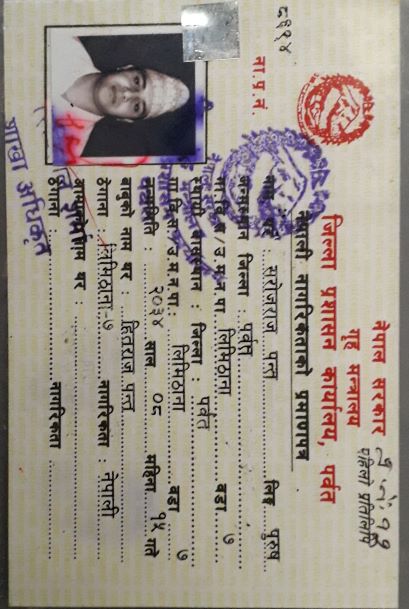 नेपाल सरकार
गृह मन्त्रालय
जिल्ला प्रशासन कार्यालय, पर्वत
नेपाली नागरिकताको प्रमाणपत्र
पहिलो प्रतिलिपि
ना.प्र.नं.
नाम थर : सरोजराज पन्त लिङ्ग पुरुष
जन्मस्थान जिल्ला : पर्वत
गा.वि.स/उ.म.न.पा लिमिठाना वडा ७
स्थायी बासस्थान : जिल्ला : पर्वत
गा.वि.स/उ.म.न.पा : लिमिठाना वडा ७
जन्ममिति : २०३४ साल ०८ महिना १५ गते
बाबुको नाम थर : हितराज पन्त
ठेगाना : लिमिठाना-७ नागरिकता : नेपाली
आमाको नाम थर :
ठेगाना : नागरिकता
शाखा अधिकृत